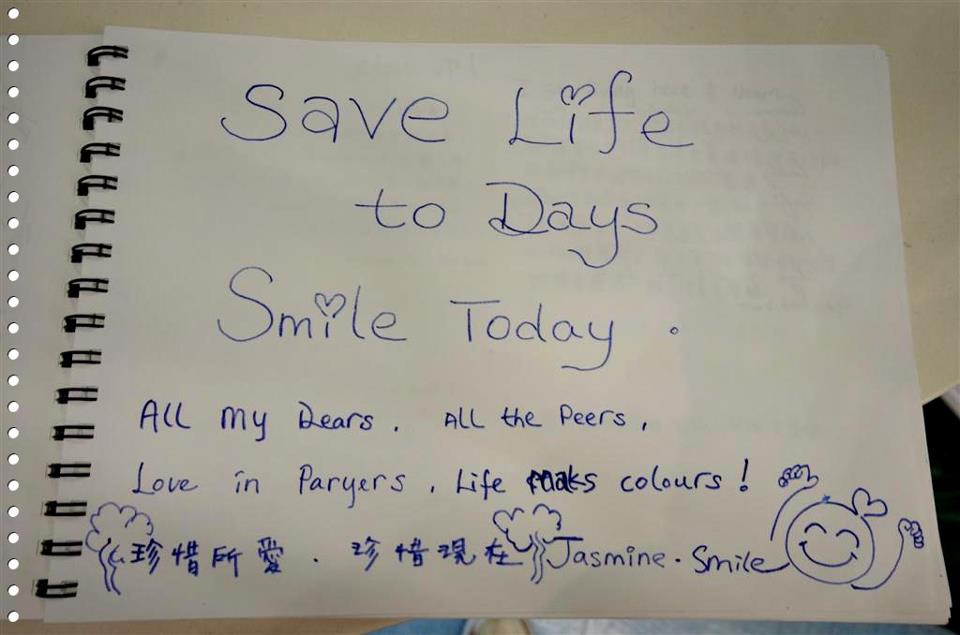 Save Life
to Days
Smile Today .
All my Dears . All the Peers ,
Love in Paryers . Life maks colours !
珍惜所愛 . 珍惜現在 Jasmine . Smile